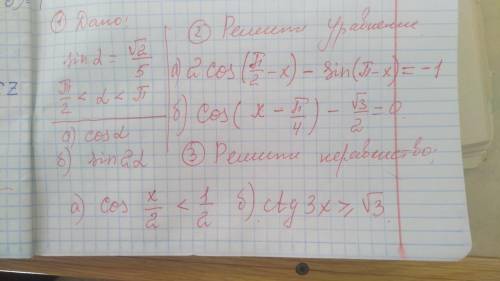 ① Дано:
sin α = √2/5
π/2 < α < π
а) cos α
б) sin 2α
② Решите уравнение
а) 2 cos(π/2 − x) − sin(π − x) = −1
б) cos(x − π/4) − √3/2 = 0.
③ Решите неравенство:
а) cos x/2 < 1/2 б) ctg 3x ⩾ √3.